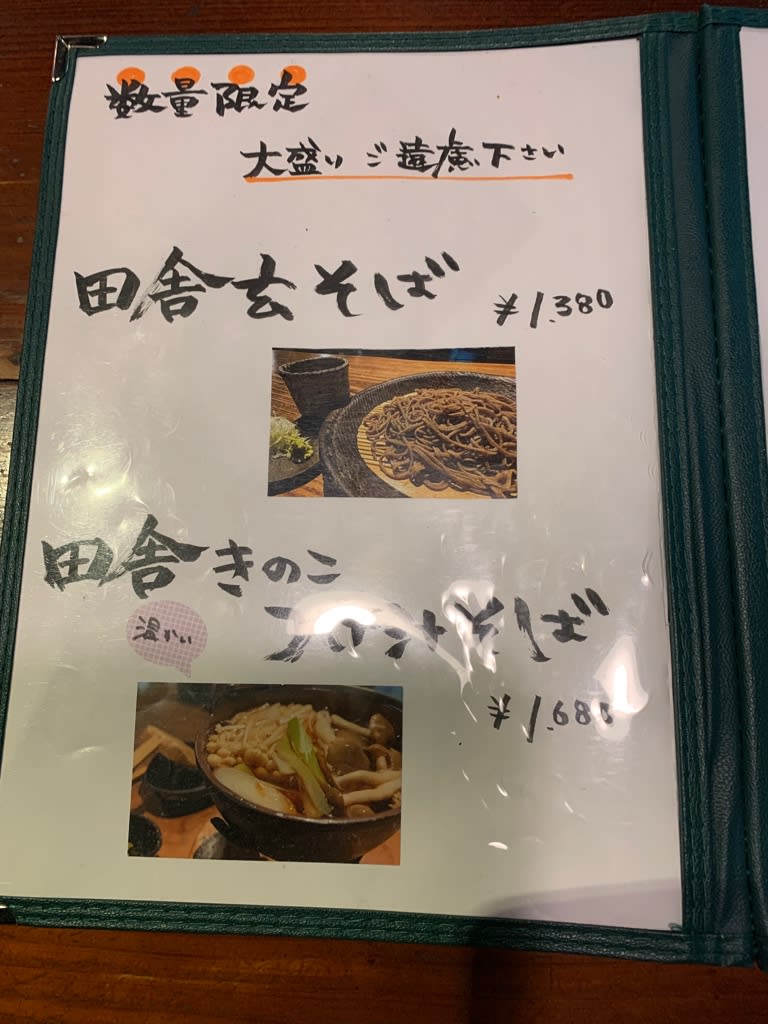 数量限定
大盛りご遠慮下さい
田舎玄そば
¥1.380
田舎きのこ
温かい
つけ汁そば
¥1.680